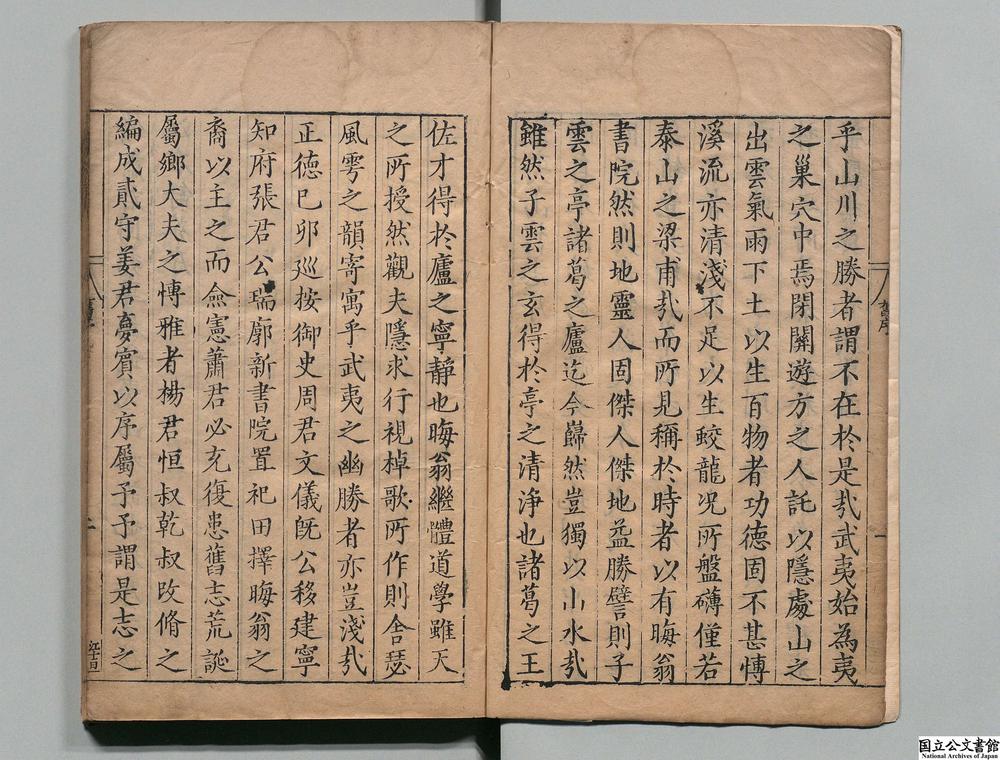 乎山川之勝者謂不在於是㢤武夷始為夷
之巢穴中焉閑關遊方之人託以隱處山之
出雲氣雨下土以生百物者功德固不甚愽
溪流亦清淺不足以生蛟龍况所盤礴僅若
泰山之梁甫㢤而所見稱於時者以有晦翁
書院然則地靈人固傑人傑地益勝譬則子
雲之亭諸葛之廬迄今巋然豈獨以山水㢤
雖然子雲之玄得於亭之清淨也諸葛之王
佐才得於廬之寧靜也晦翁繼體道學雖天
之所授然觀夫隱求行視棹歌所作則舍瑟
風雩之韻寄寓乎武夷之幽勝者亦豈淺㢤
正德巳夘廵按御史周君文儀旣公移建寧
知府張君公瑞廓新書院置祀田擇晦翁之
裔以主之而僉憲蕭君必充復患舊志荒誕
屬鄉大夫之愽雅者楊君恒叔乾叔攺脩之
編成貳守姜君夢賔以序屬予予謂是志之
舊序
一
国立公文書館
National Archives of Japan